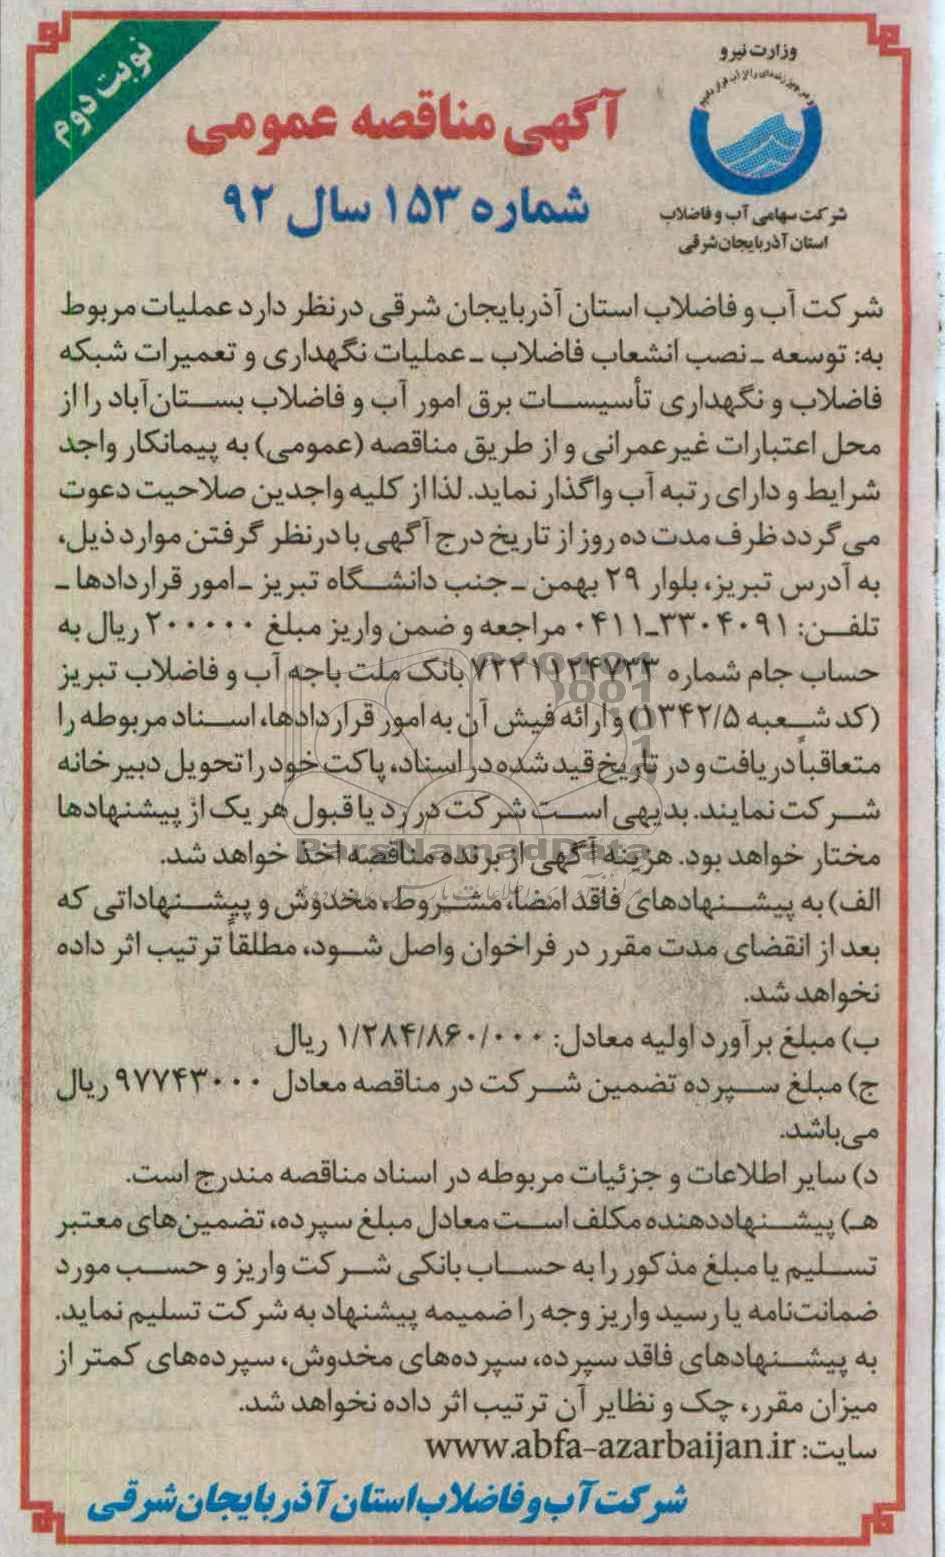 نوبت دوم
وزارت نیرو
شرکت سهامی آب و فاضلاب
استان آذربایجان‌شرقی
آگهی مناقصه عمومی
شماره ۱۵۳ سال ۹۲
شرکت آب و فاضلاب استان آذربایجان شرقی درنظر دارد عملیات مربوط
به: توسعه ـ نصب انشعاب فاضلاب ـ عملیات نگهداری و تعمیرات شبکه
فاضلاب و نگهداری تأسیسات برق امور آب و فاضلاب بستان‌آباد را از
محل اعتبارات غیرعمرانی و از طریق مناقصه (عمومی) به پیمانکار واجد
شرایط و دارای رتبه آب واگذار نماید. لذا از کلیه واجدین صلاحیت دعوت
می‌گردد ظرف مدت ده روز از تاریخ درج آگهی با درنظر گرفتن موارد ذیل،
به آدرس تبریز، بلوار ۲۹ بهمن ـ جنب دانشگاه تبریز ـ امور قراردادها ـ
تلفن: ۳۳۰۴۰۹۱ـ۰۴۱۱ مراجعه و ضمن واریز مبلغ ۲۰۰۰۰۰ ریال به
حساب جام شماره ۷۲۲۱۱۲۴۷۳۳ بانک ملت باجه آب و فاضلاب تبریز
(کد شعبه ۱۳۴۲/۵) و ارائه فیش آن به امور قراردادها، اسناد مربوطه را
متعاقباً دریافت و در تاریخ قید شده در اسناد، پاکت خود را تحویل دبیرخانه
شرکت نمایند. بدیهی است شرکت در رد یا قبول هر یک از پیشنهادها
مختار خواهد بود. هزینه آگهی از برنده مناقصه اخذ خواهد شد.
ParsNamadData
الف) به پیشنهادهای فاقد امضا، مشروط، مخدوش و پیشنهاداتی که
بعد از انقضای مدت مقرر در فراخوان واصل شود، مطلقاً ترتیب اثر داده
نخواهد شد.
ب) مبلغ برآورد اولیه معادل: ۱/۲۸۴/۸۶۰/۰۰۰ ریال
ج) مبلغ سپرده تضمین شرکت در مناقصه معادل ۹۷۷۴۳۰۰۰ ریال
می‌باشد.
د) سایر اطلاعات و جزئیات مربوطه در اسناد مناقصه مندرج است.
هـ) پیشنهاددهنده مکلف است معادل مبلغ سپرده، تضمین‌های معتبر
تسلیم یا مبلغ مذکور را به حساب بانکی شرکت واریز و حسب مورد
ضمانت‌نامه یا رسید واریز وجه را ضمیمه پیشنهاد به شرکت تسلیم نماید.
به پیشنهادهای فاقد سپرده، سپرده‌های مخدوش، سپرده‌های کمتر از
میزان مقرر، چک و نظایر آن ترتیب اثر داده نخواهد شد.
سایت: www.abfa-azarbaijan.ir
شرکت آب و فاضلاب استان آذربایجان شرقی